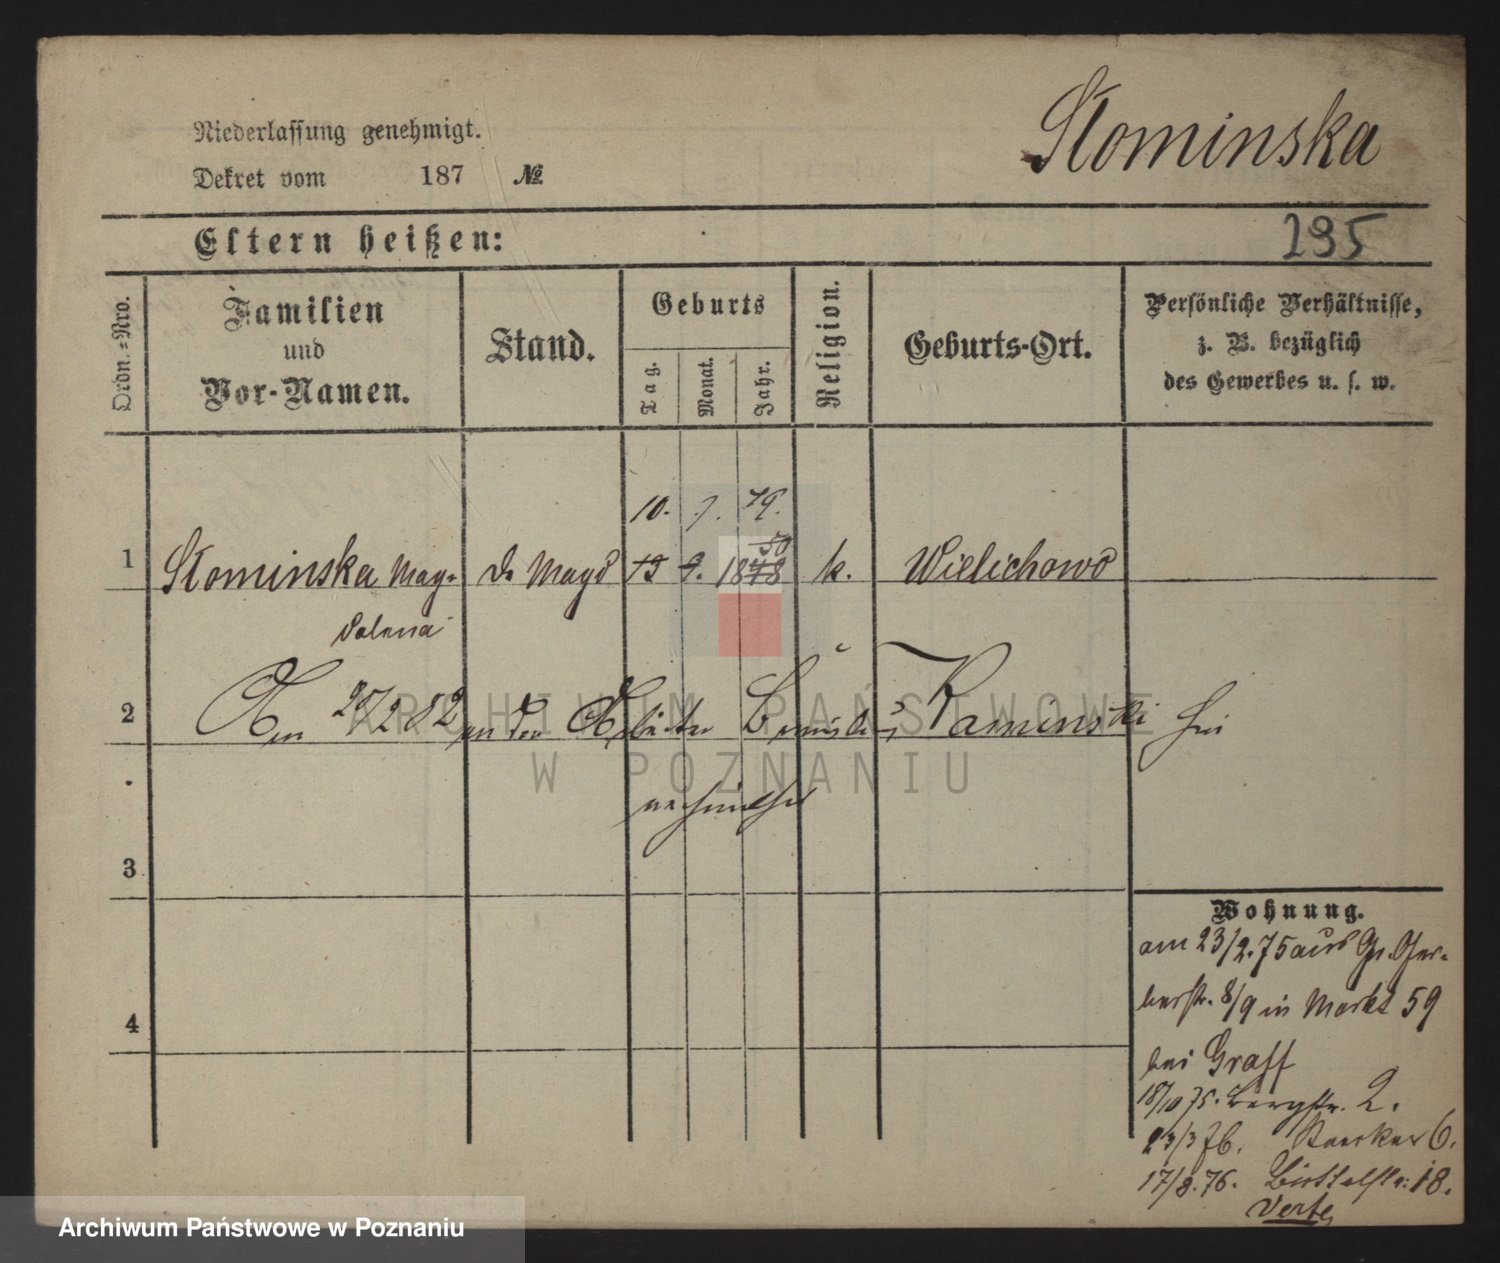 Słominska
Niederlassung genehmigt.
Dekret vom 187 №
Eltern heißen:
295
Ordn.-Nro.
Familien
und
Vor-Namen.
Stand.
Geburts
Tag.
Monat.
Jahr.
Religion.
Geburts-Ort.
Persönliche Verhältnisse,
z. B. bezüglich
des Gewerbes u. s. w.
10. 7. 79.
50
1 Słominska Mag- d. Magd 13 9. 1848 k. Wielichowo
dalena
2 Am 28/2 82 an den Arbeiter Kaminski hier
verheirathet
3
4
Wohnung.
am 23/2.75 aus Gr. Ger-
berstr. 8/9 in Markt 59
bei Graff
18/10 75. Bergstr. 2.
23/3 76. 6.
17/8.76. Büttelstr. 18.
Verte
ARCHIWUM PAŃSTWOWE
W POZNANIU
Archiwum Państwowe w Poznaniu